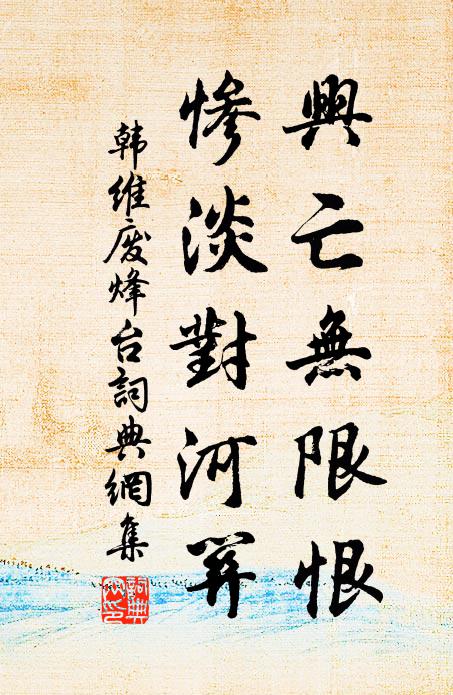 興亡無限恨
慘淡對河關
韩維废烽台詞典網集